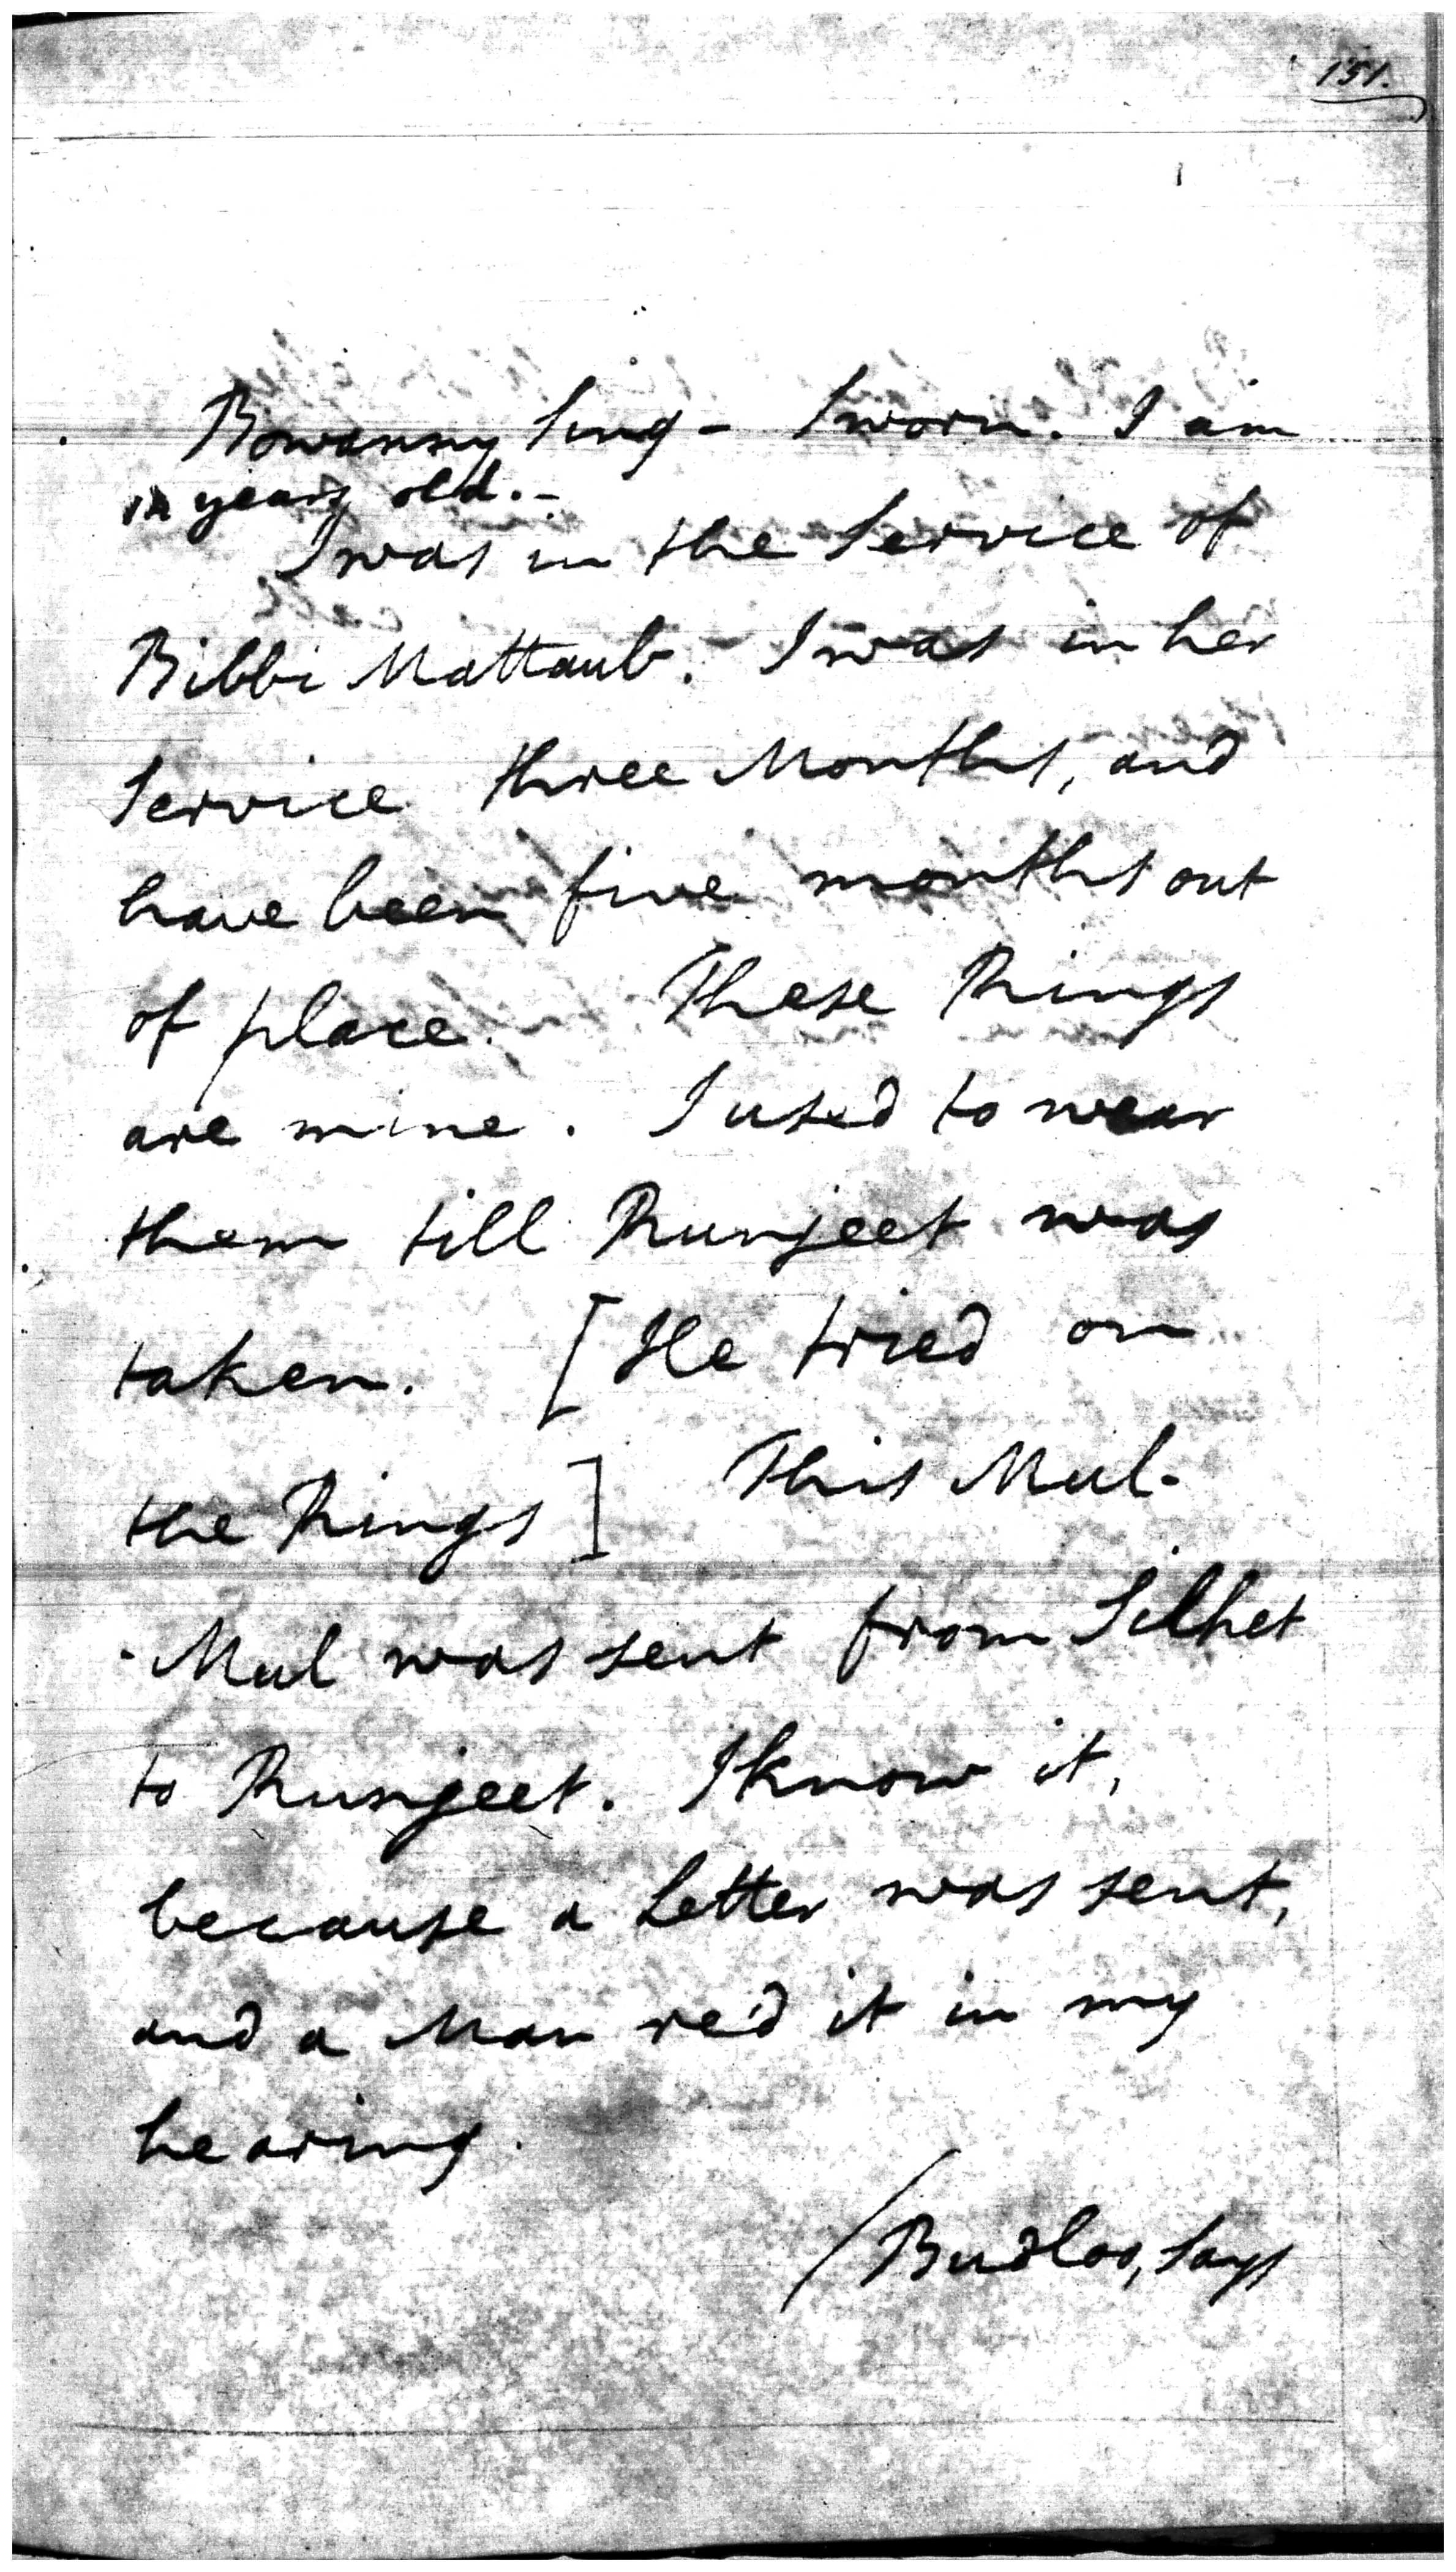 151.
Bowanny Sing - Sworn. I am
years old. -
I was in the Service of
Bibbi Mattaub. I was in her
Service three Months, and
have been five months out
of place. These Rings
are mine. I used to wear
them till Runjeet was
taken. [He tried on
the Rings] This Mul-
-Mul was sent from Silhet
to Runjeet. I know it,
because a Letter was sent,
and a Man re'd it in my
hearing.
/Budloo, Says